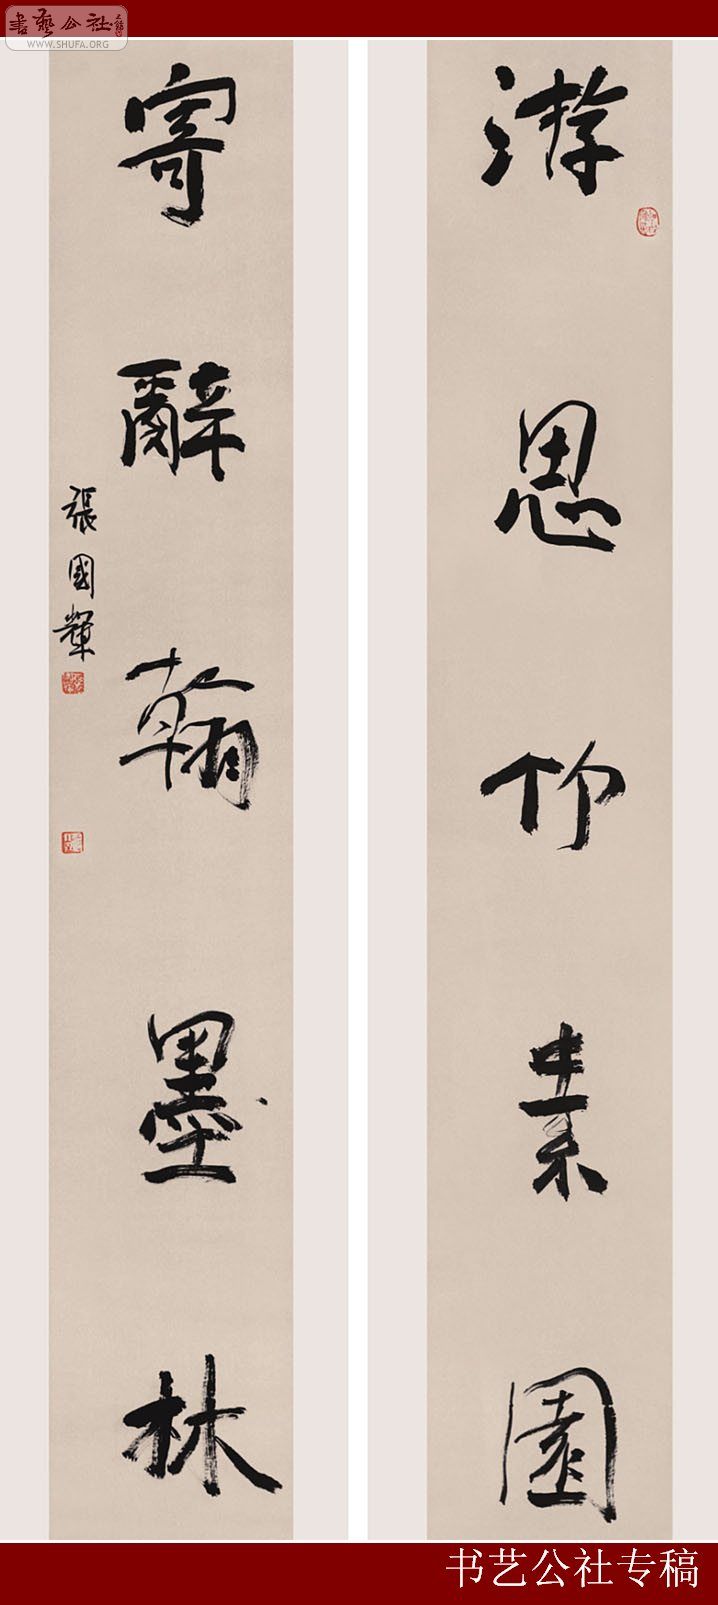 书艺公社
WWW.SHUFA.ORG
游思竹素園
寄辭翰墨林
張國輝
书艺公社专稿